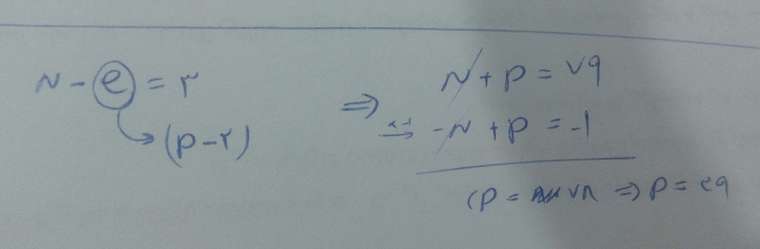 N - e = ۳
→ (p - ۲)
⇒ N + p = ۷۹
×-۱ → -N + p = -۱
۲p = ۷۸ ⇒ p = ۳۹